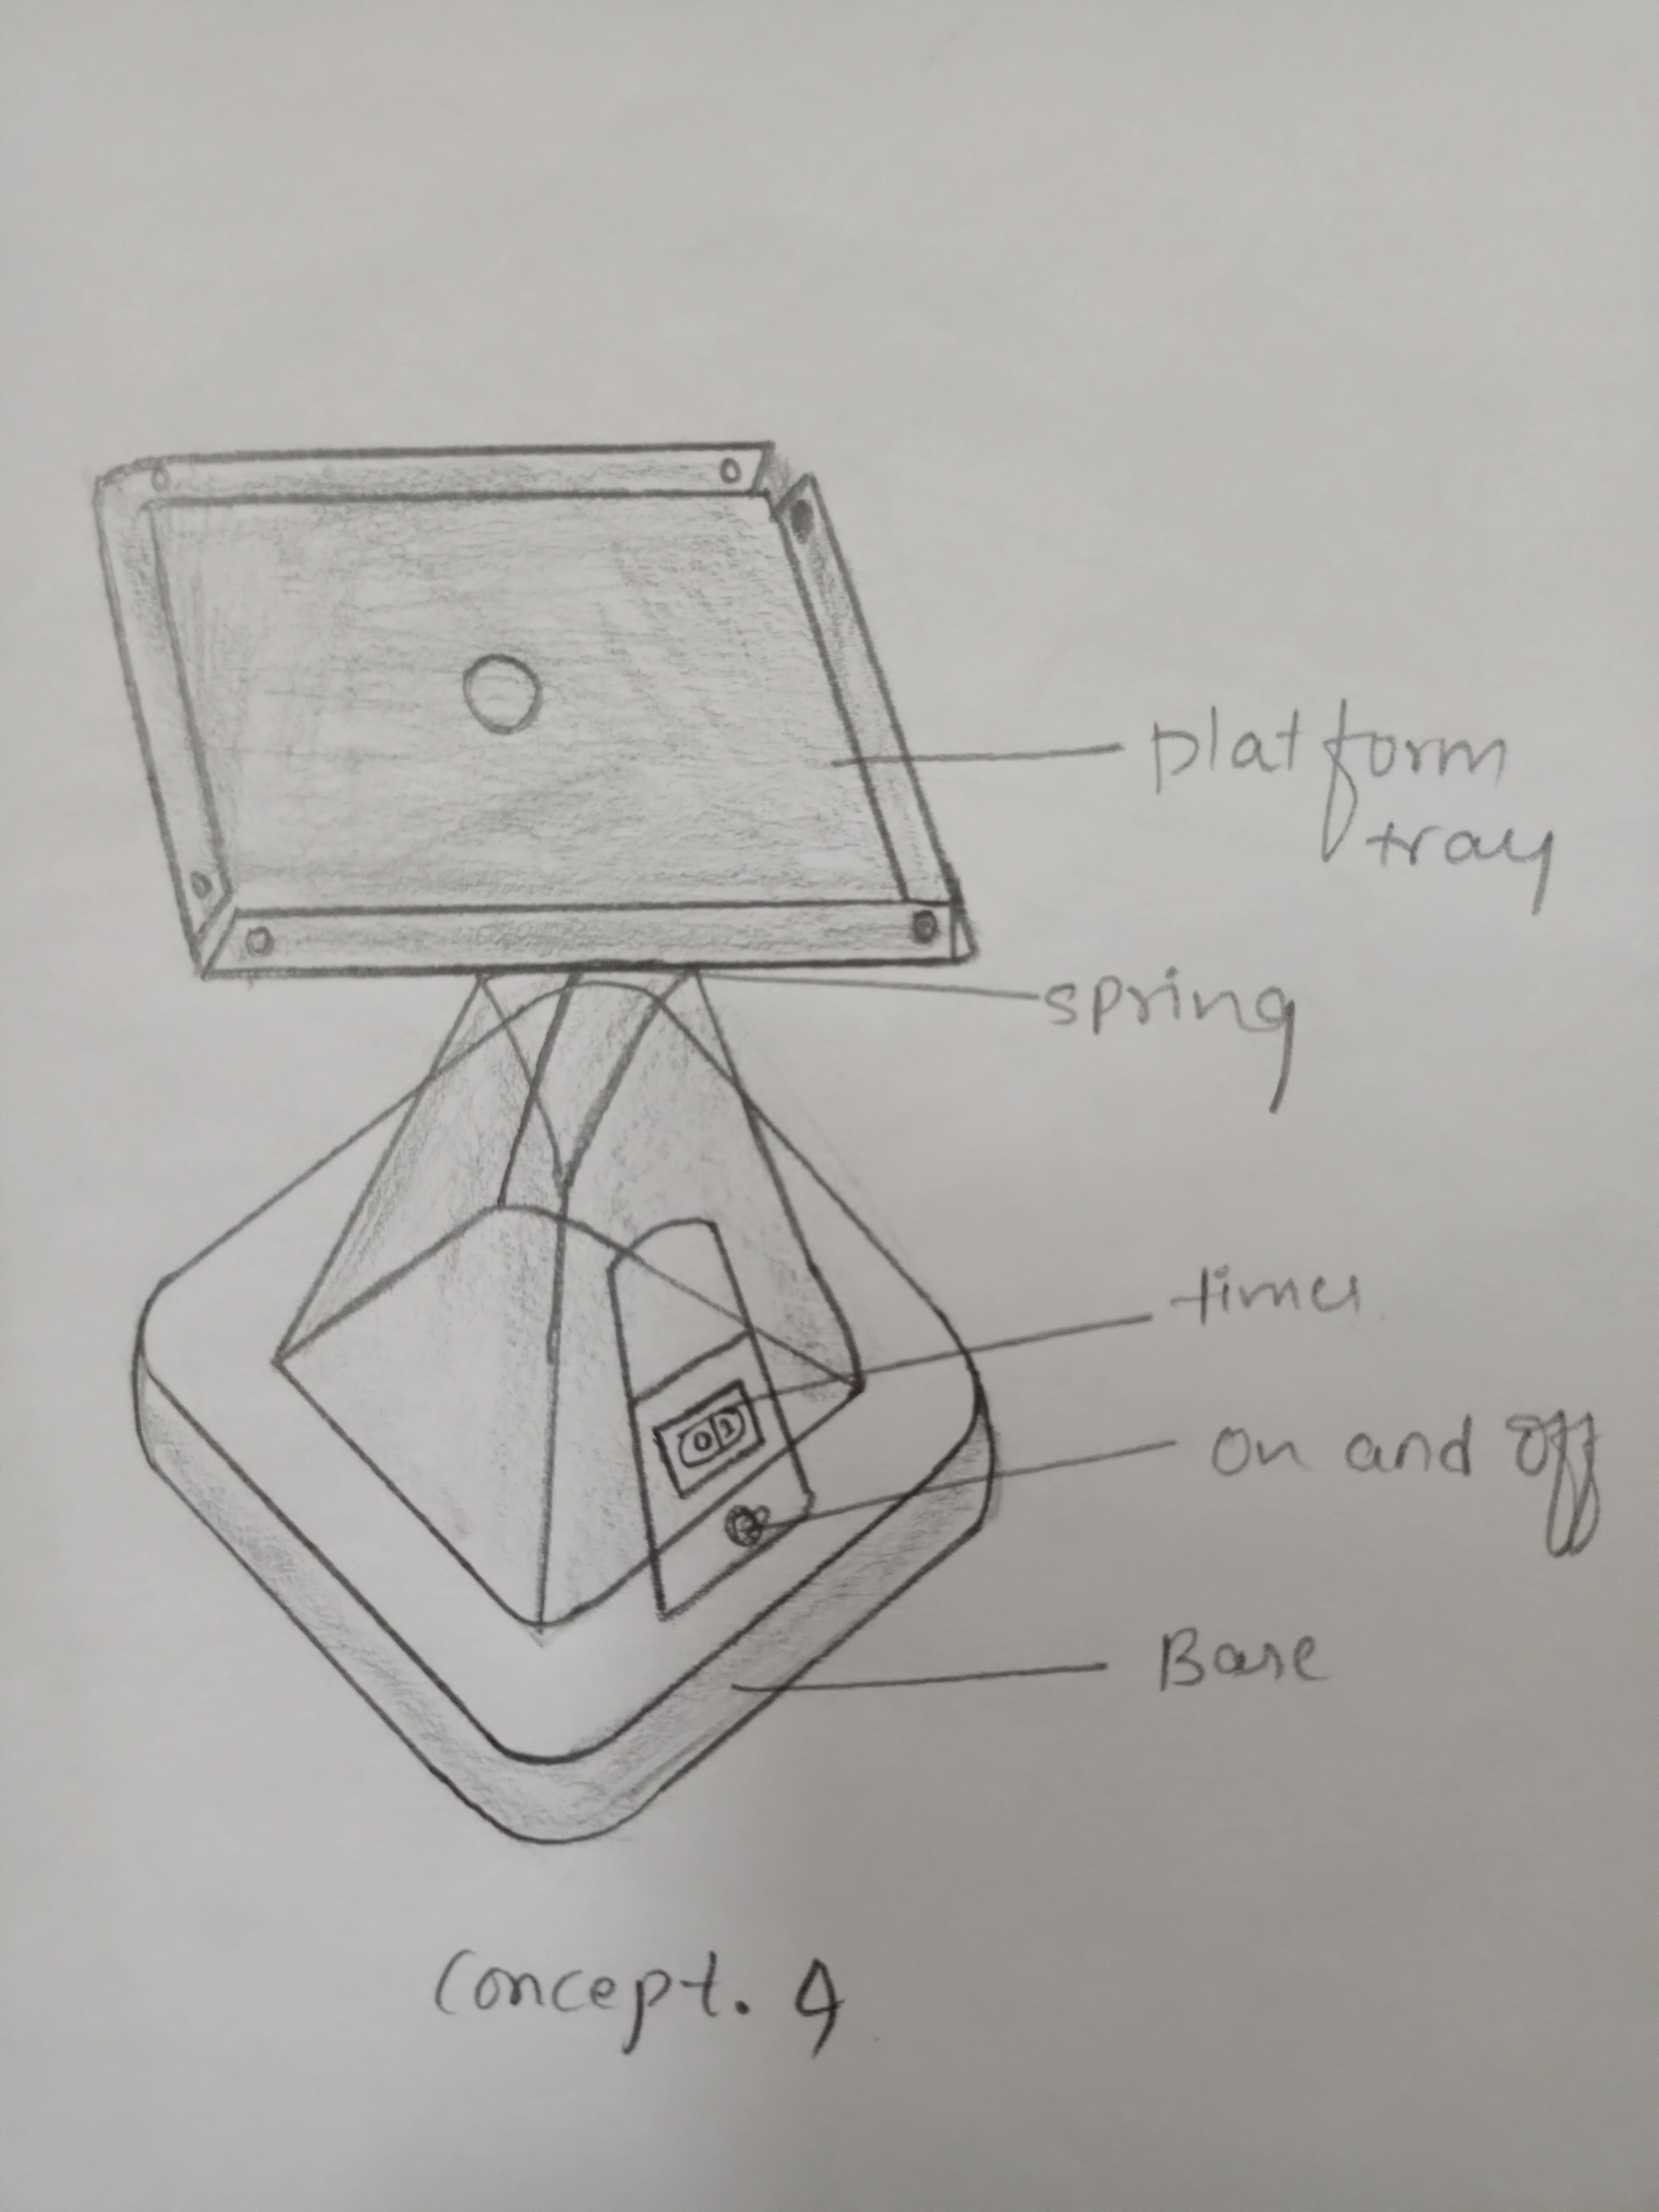 platform
tray
spring
timer
01
on and off
Base
Concept. 4